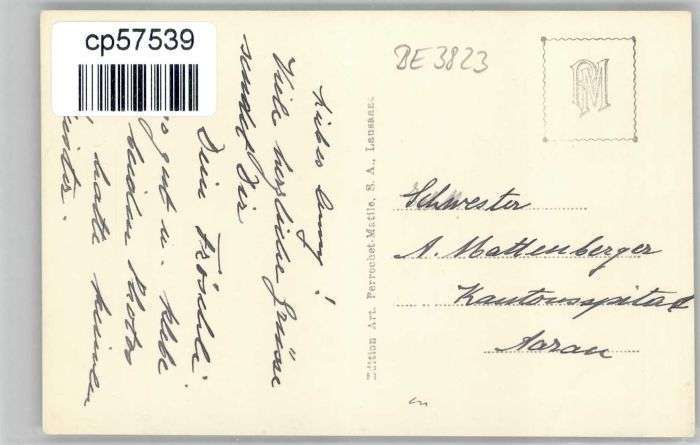 cp57539
BE 3823
PM
Liebes Anny!
Viele herzliche Grüsse
sendet Dir
Dein Fröscheli.
gut u. klebe
beiden Photos
hatte keinen
Edition Art. Perrochet-Matile, S. A., Lausanne
Schwester
A. Mattenberger
Kantonsspital
Aarau